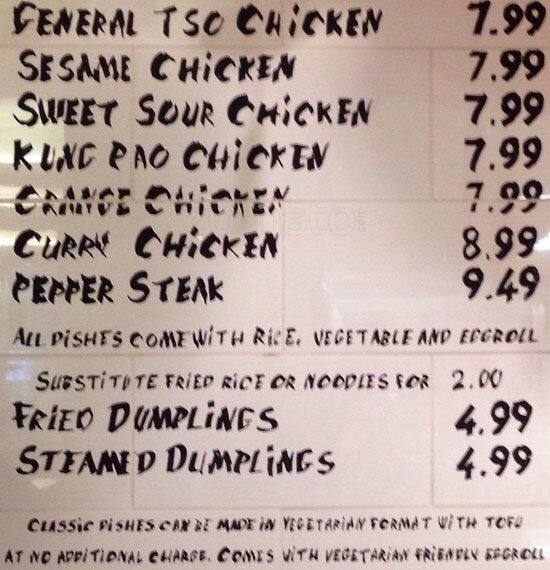 GENERAL TSO CHICKEN 7.99
SESAME CHICKEN 7.99
SWEET SOUR CHICKEN 7.99
KUNG PAO CHICKEN 7.99
ORANGE CHICKEN 7.99
CURRY CHICKEN 8.99
PEPPER STEAK 9.49
ALL DISHES COME WITH RICE, VEGETABLE AND EGGROLL
SUBSTITUTE FRIED RICE OR NOODLES FOR 2.00
FRIED DUMPLINGS 4.99
STEAMED DUMPLINGS 4.99
CLASSIC DISHES CAN BE MADE IN VEGETARIAN FORMAT WITH TOFU
AT NO ADDITIONAL CHARGE. COMES WITH VEGETARIAN FRIENDLY EGGROLL